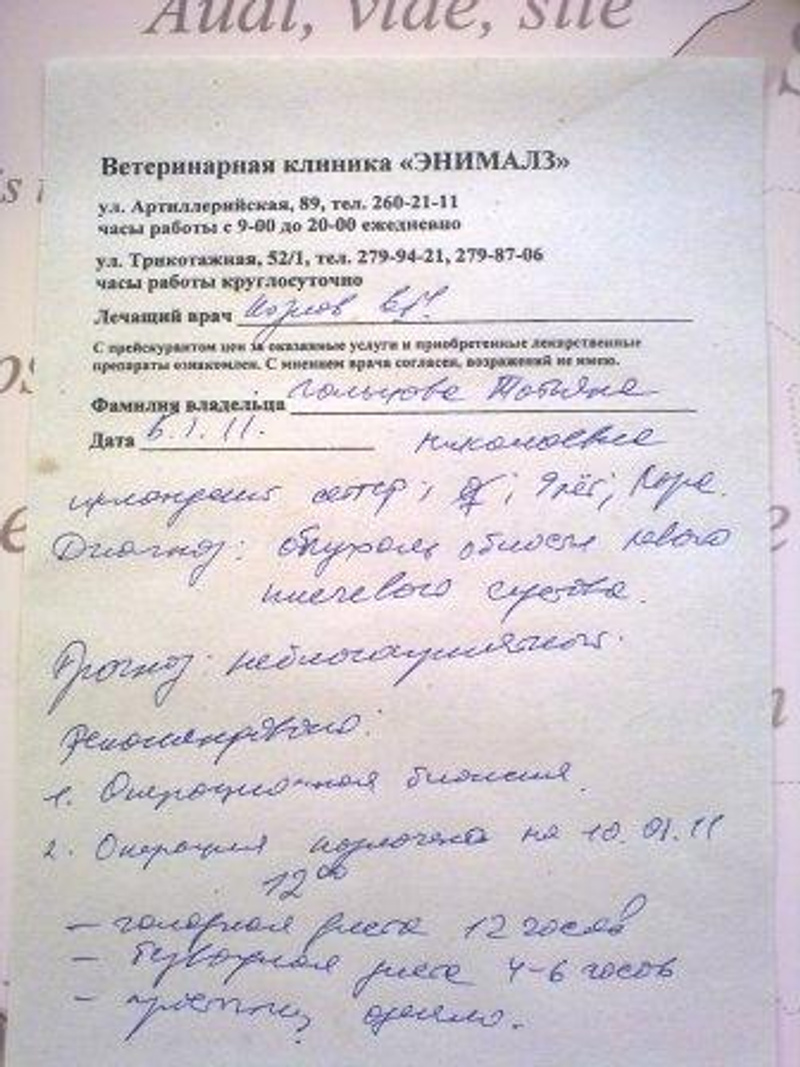 Audi, vide, sile
Ветеринарная клиника «ЭНИМАЛЗ»
ул. Артиллерийская, 89, тел. 260-21-11
часы работы с 9-00 до 20-00 ежедневно
ул. Трикотажная, 52/1, тел. 279-94-21, 279-87-06
часы работы круглосуточно
Лечащий врач Козлов
С прейскурантом цен за оказанные услуги и приобретенные лекарственные
препараты ознакомлен. С мнением врача согласен, возражений не имею.
Фамилия владельца Татьяна
Дата 6.1.11.
Николаевна
ирландский сеттер; ♀; 9 лет; Кора.
Диагноз: опухоль области левого
плечевого сустава.
Прогноз: неблагоприятный.
Рекомендовано:
1. Операционная биопсия.
2. Операция назначена на 10.01.11
12 00
- голодная диета 12 часов
- безводная диета 4-6 часов
- простынь, одеяло.